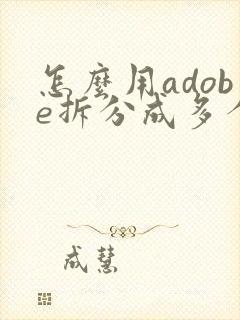 怎麼用adob
e拆分成多个
成慧